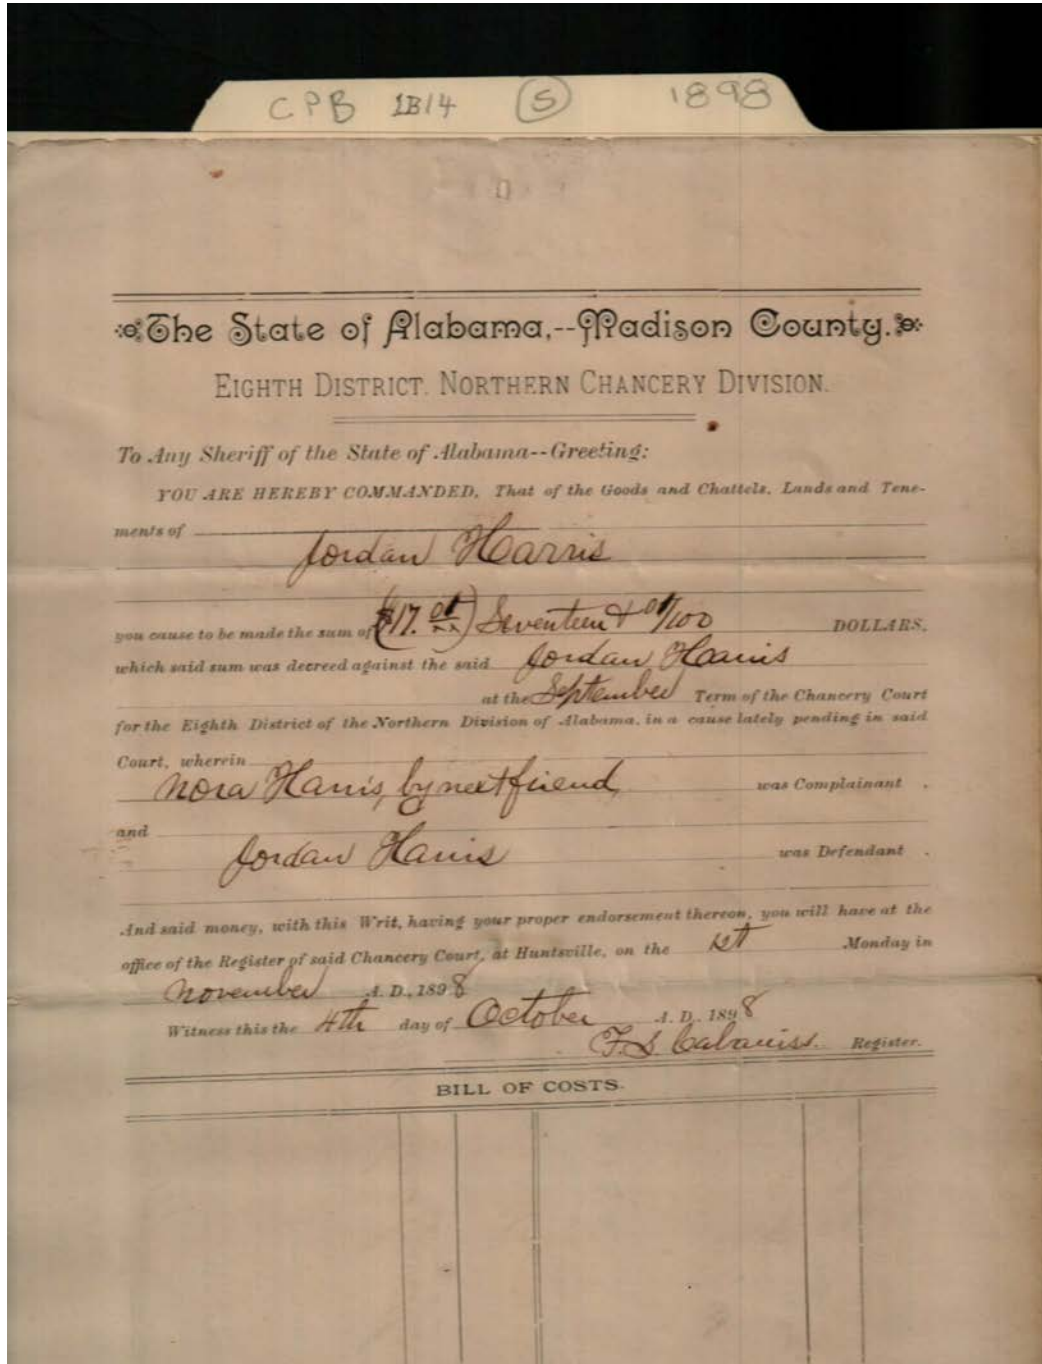 CPB 1B14 (5) 1898
The State of Alabama,--Madison County.
EIGHTH DISTRICT. NORTHERN CHANCERY DIVISION.
To Any Sheriff of the State of Alabama--Greeting:
YOU ARE HEREBY COMMANDED, That of the Goods and Chattels, Lands and Tene-
ments of
Jordan Harris
you cause to be made the sum of ($17. 01/xx) Seventeen & 01/100 DOLLARS,
which said sum was decreed against the said Jordan Harris
at the September Term of the Chancery Court
for the Eighth District of the Northern Division of Alabama, in a cause lately pending in said
Court, wherein
Nora Harris, by next friend, was Complainant .
and
Jordan Harris was Defendant .
And said money, with this Writ, having your proper endorsement thereon, you will have at the
office of the Register of said Chancery Court, at Huntsville, on the 1st Monday in
November A. D., 1898
Witness this the 4th day of October A. D. 1898
F. S. Cabaniss. Register.
BILL OF COSTS.